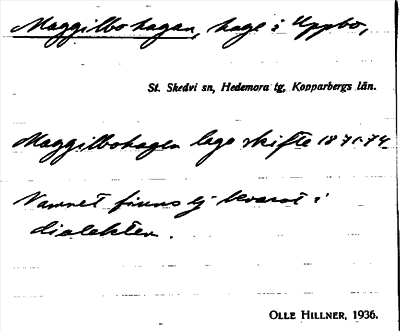 Maggilbohagan, hage i Uppbo,
St. Skedvi sn, Hedemora tg, Kopparbergs län.
Maggilbohagen laga skifte 1871-74
Namnet finns ej kvarat i
dialekten.
OLLE HILLNER, 1936.